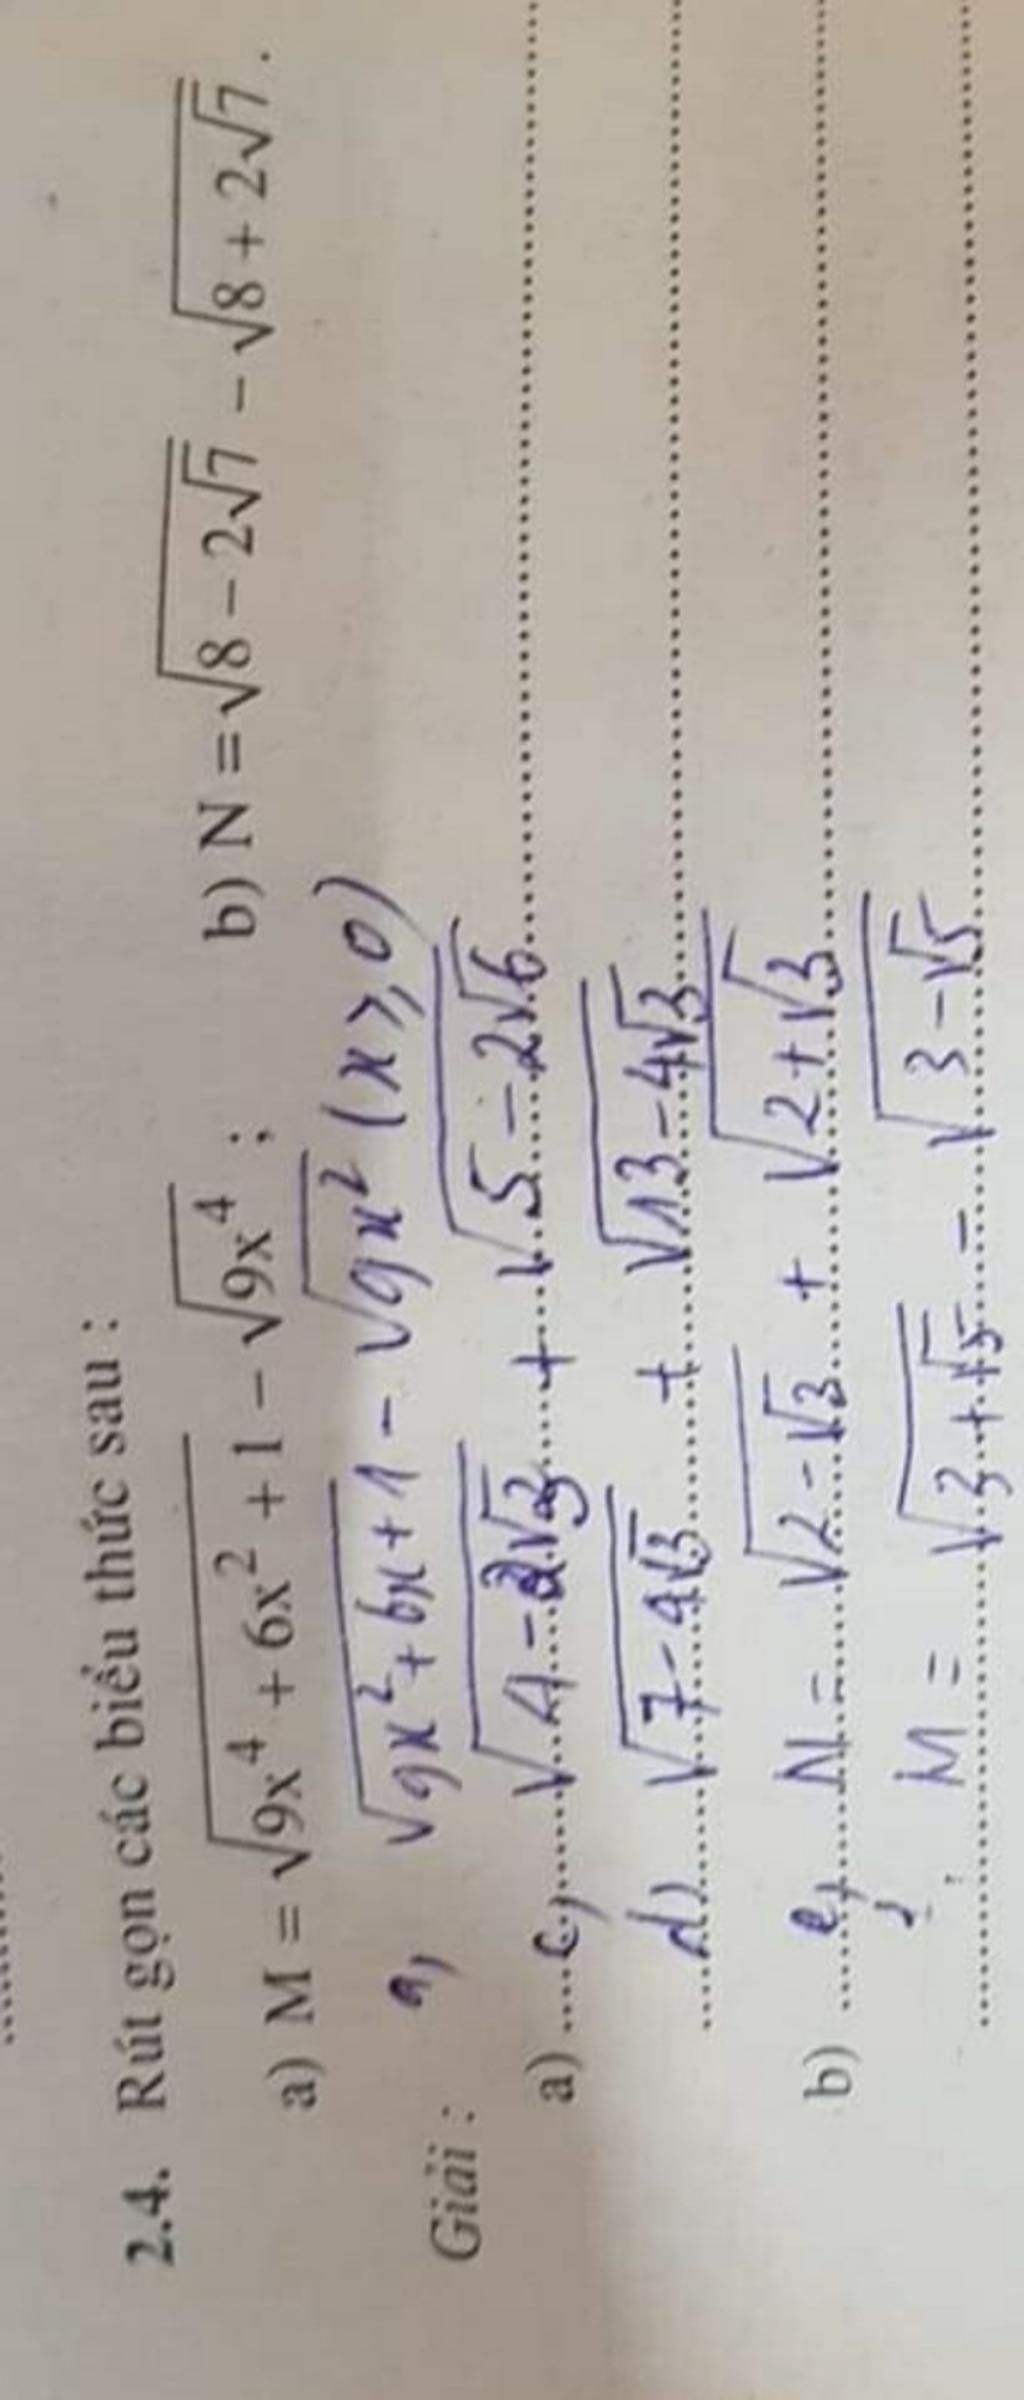 2.4. Rút gọn các biểu thức sau :
a) M = √(9x⁴ + 6x² + 1) − √(9x⁴) ; b) N = √(8 − 2√7) − √(8 + 2√7) .
a, √(9x² + 6x + 1) − √(9x²) (x ≥ 0)
Giải :
a) c, √(4 − 2√3) + √(5 − 2√6)
d) √(7 − 4√3) + √(13 − 4√3)
b) e, N = √(2 − √3) + √(2 + √3)
M = √(3 + √5) − √(3 − √5)